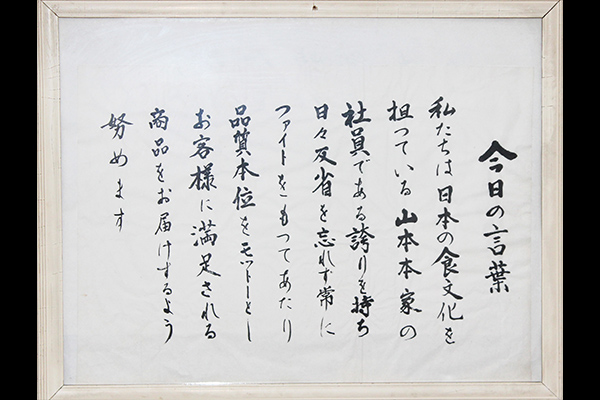 今日の言葉
私たちは日本の食文化を
担っている山本本家の
社員である誇りを持ち
日々反省を忘れず常に
ファイトをもってあたり
品質本位をモットーとし
お客様に満足される
商品をお届けするよう
努めます